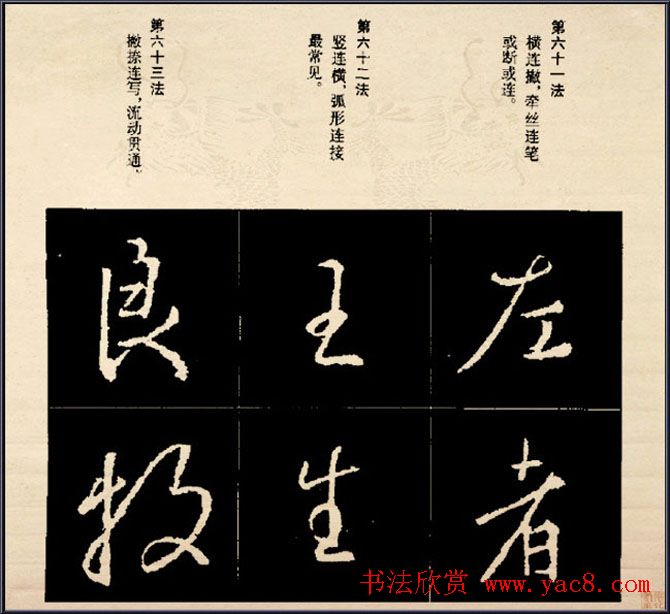 第六十一法
横连撇，牵丝连笔
或断或连。
第六十二法
竖连横，弧形连接
最常见。
第六十三法
撇捺连写，流动贯通。
左
者
王
生
良
牧
书法欣赏 www.yac8.com